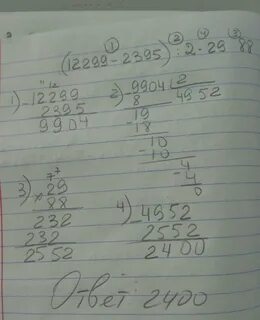 (1) (2) (4) (3)
(12299 - 2395) : 2 - 29 88
1) - 12299
2395
9904
2) - 9904 2
8 4952
19
- 18
- 10
- 10
- 4
4
0
3) 7 7
× 29
88
232
232
2552
4) - 4952
2552
2400
Ответ: 2400